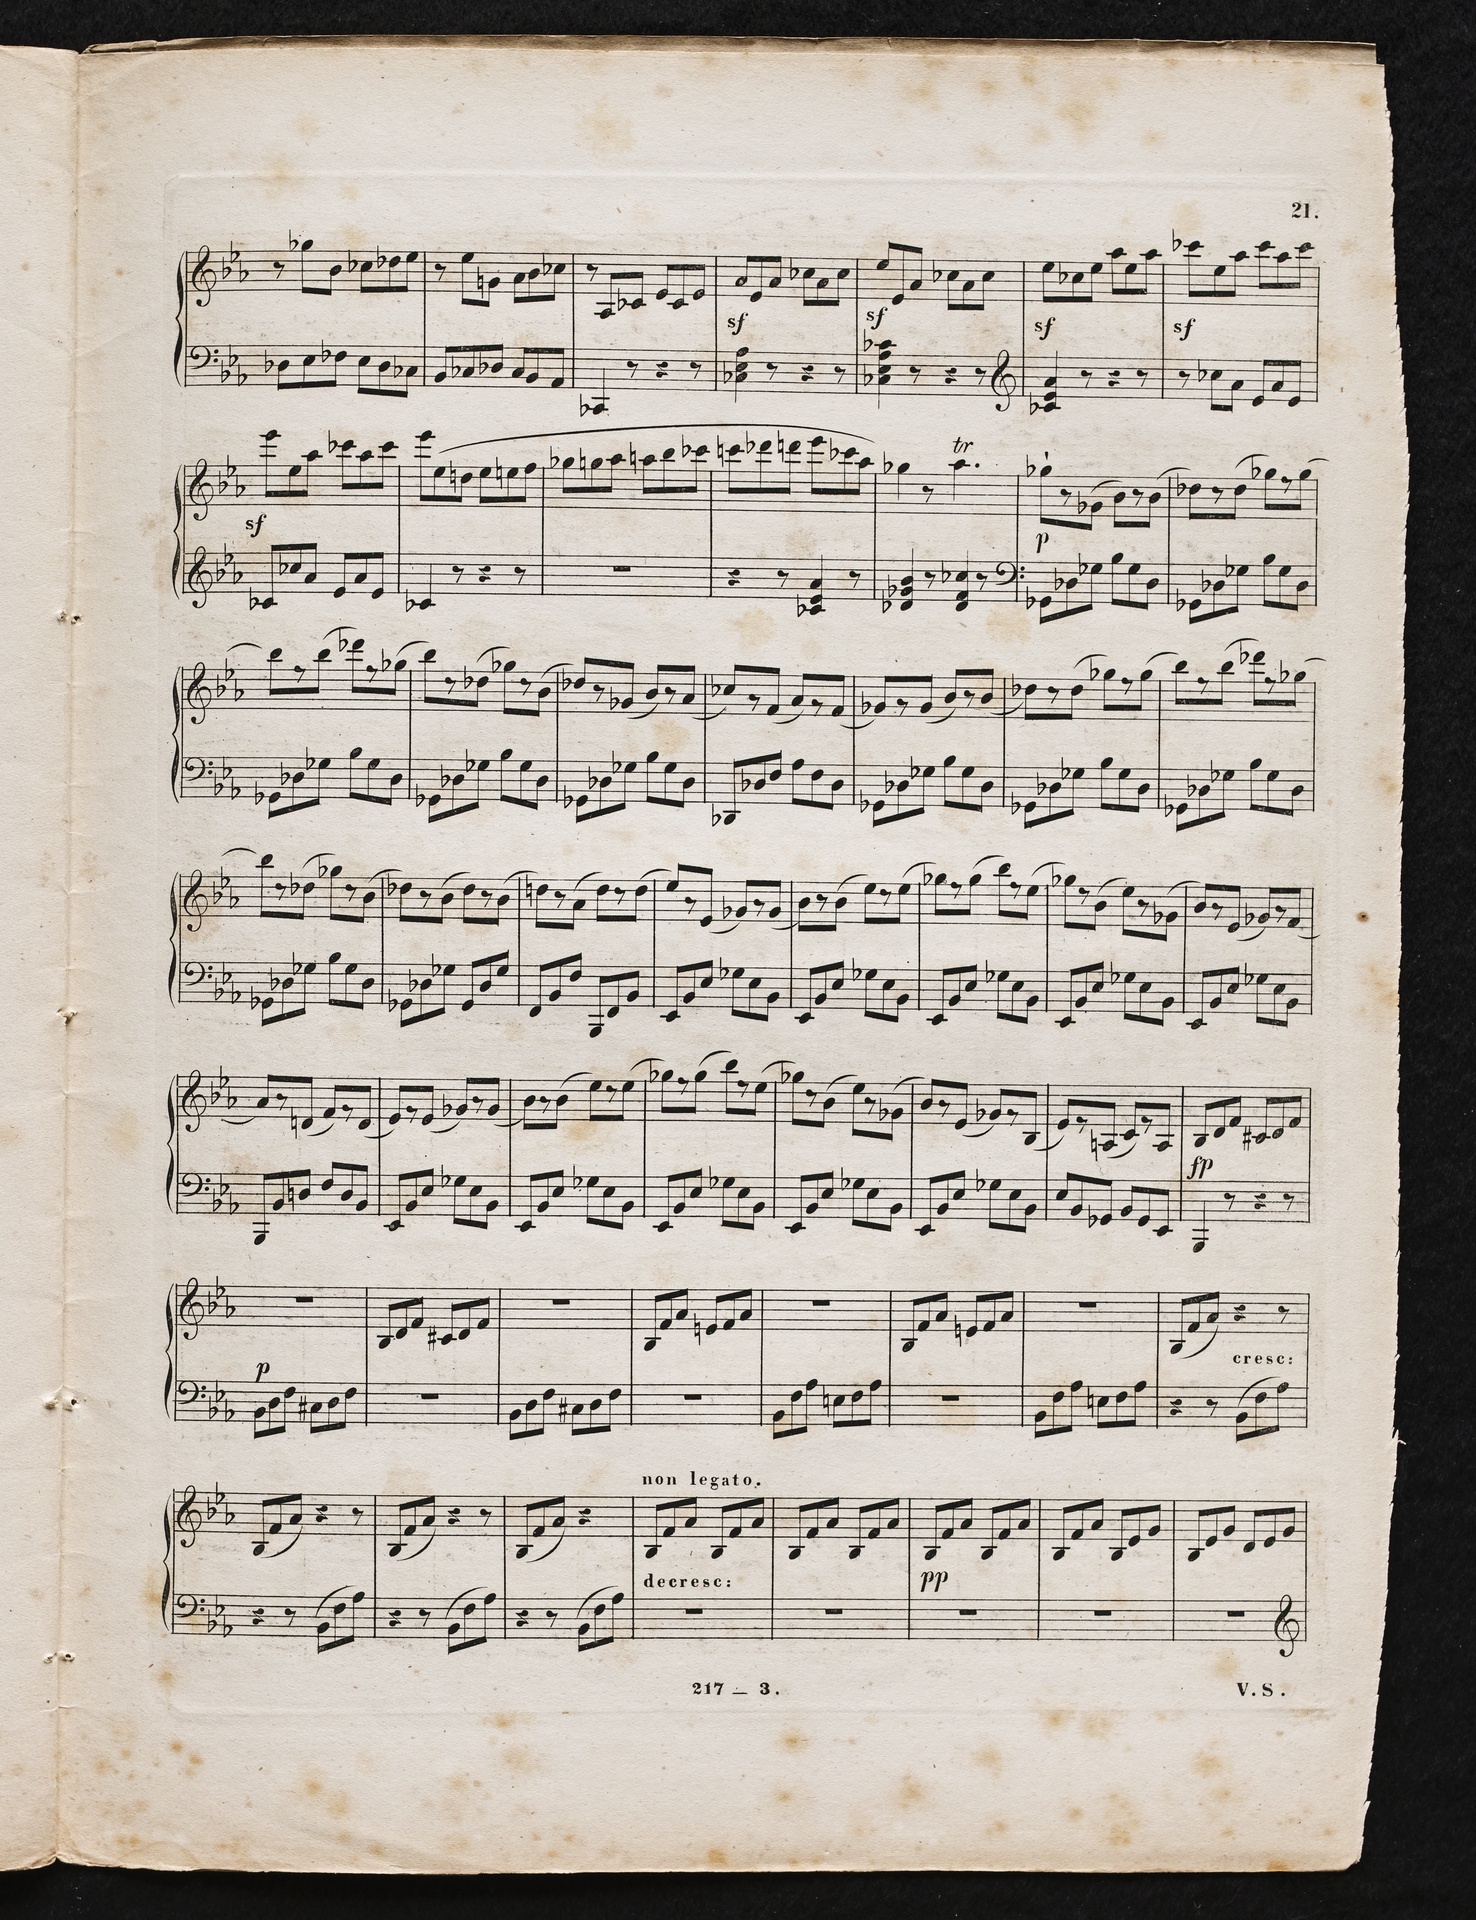 21.
sf sf sf sf
tr
sf p
fp
p
cresc:
non legato.
decresc: pp
217 – 3. V.S.